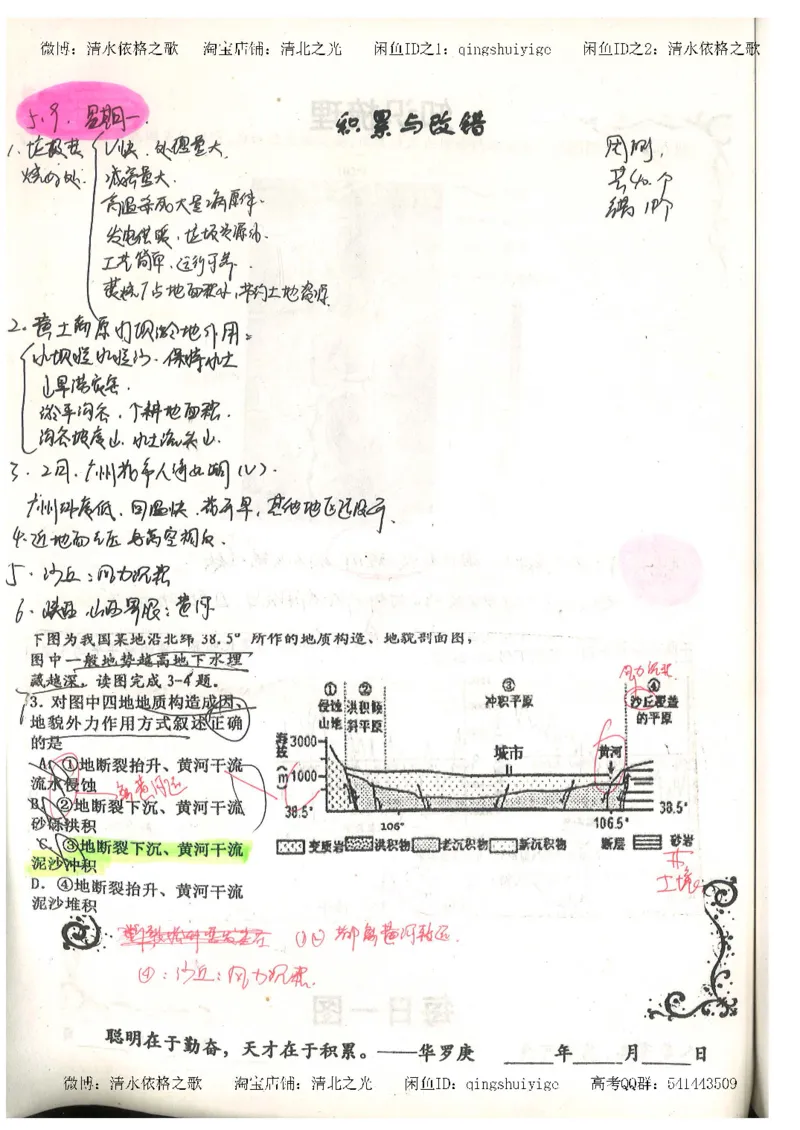 微博：清水依格之歌 淘宝店铺：清北之光 闲鱼ID之1：qingshuiyige 闲鱼ID之2：清水依格之歌
5.9. 星期一
积累与改错
1. 垃圾焚烧好处
快、处理量大.
减容量大.
高温杀死大量病原体.
发电供暖，垃圾资源化.
工艺简单，运行可靠.
占地面积小，节约土地资源
周测，
共40个
错 个
2. 黄土高原 坝 地 作用：
坝拦水拦沙. 保持水土
旱涝灾害.
淤平沟谷，个耕地面积.
沟谷坡度 . 水土流失 .
3. 2月. 广州 市人 (√).
广州纬度低、回温快、花开早，其他地区还没开、
4. 近地面气压与高空相反.
5. 沙丘：风力沉积
6. 陕西 山西界限：黄河
下图为我国某地沿北纬 38.5° 所作的地质构造、地貌剖面图，
图中一般地势越高地下水埋
藏越深。读图完成 3-4 题。
3. 对图中四地地质构造成因、
地貌外力作用方式叙述正确
的是
A. ①地断裂抬升、黄河干流
流水侵蚀
B. ②地断裂下沉、黄河干流
砂砾洪积
C. ③地断裂下沉、黄河干流
泥沙冲积
D. ④地断裂抬升、黄河干流
泥沙堆积
离黄河远
风力沉积
① ② ③ ④
侵蚀山地 洪积倾斜平原 冲积平原 沙丘覆盖的平原
海拔（m）
3000
1000
城市 黄河
38.5° 38.5°
106° 106.5°
变质岩 洪积物 老沉积物 新沉积物 断层 砂岩
土壤
①② 都离黄河较远.
④：沙丘：风力沉积.
聪明在于勤奋，天才在于积累。——华罗庚 年 月 日
微博：清水依格之歌 淘宝店铺：清北之光 闲鱼ID：qingshuiyige 高考QQ群：541443509